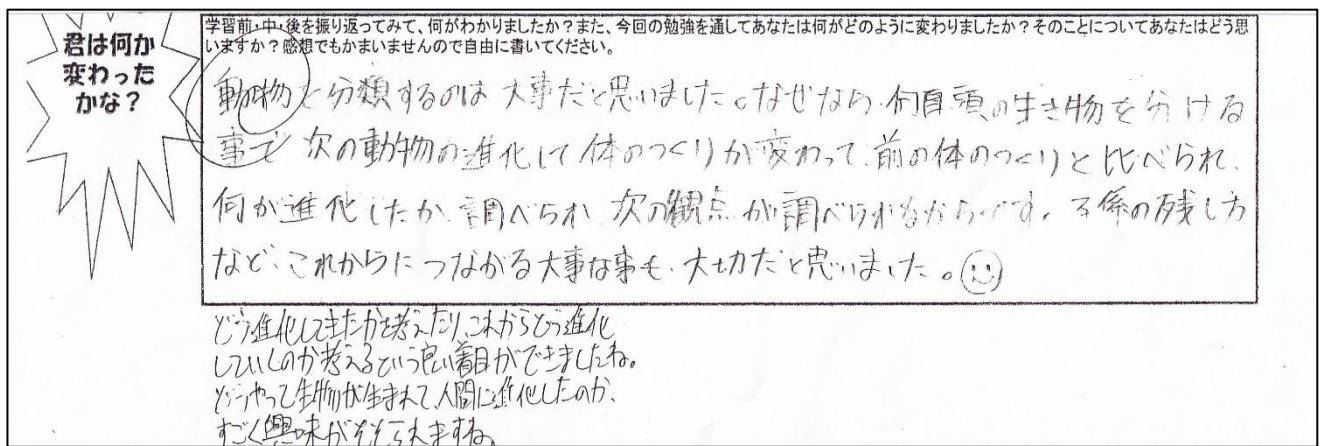 君は何か
変わった
かな？
学習前・中・後を振り返ってみて、何がわかりましたか？また、今回の勉強を通してあなたは何がどのように変わりましたか？そのことについてあなたはどう思
いますか？感想でもかまいませんので自由に書いてください。
動物を分類するのは大事だと思いました。なぜなら、何百頭の生き物を分ける
事で次の動物の進化して体のつくりが変わって、前の体のつくりと比べられ、
何が進化したか、調べられ、次の観点が調べられるからです。子孫の残し方
など、これからにつながる大事な事も、大切だと思いました。
どう進化してきたかを考えたり、これからどう進化
していくのか考えるという良い着目ができましたね。
どうやって生物が生まれて、人間に進化したのか、
すごく興味がそそられますね。